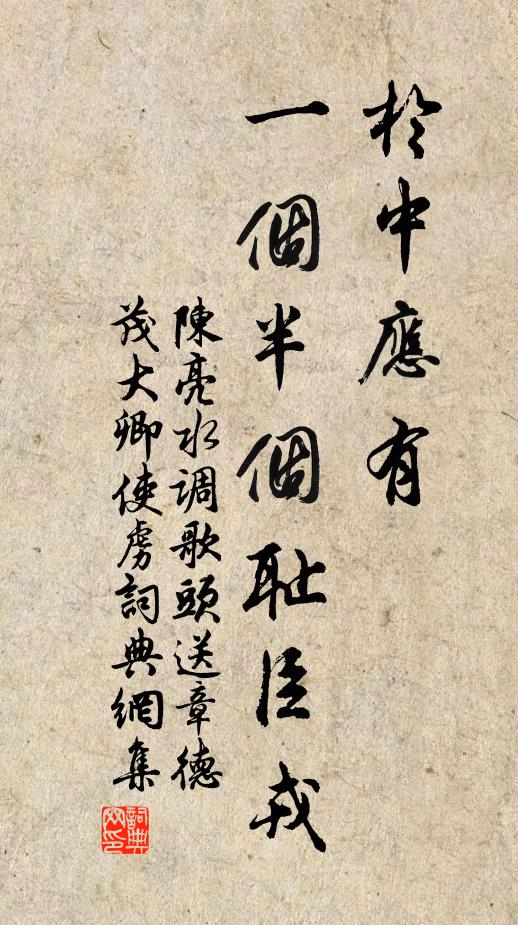 於中應有
一個半個耻臣戎
陳亮水调歌頭送章德
茂大卿使虜詞典網集
詞典
网印